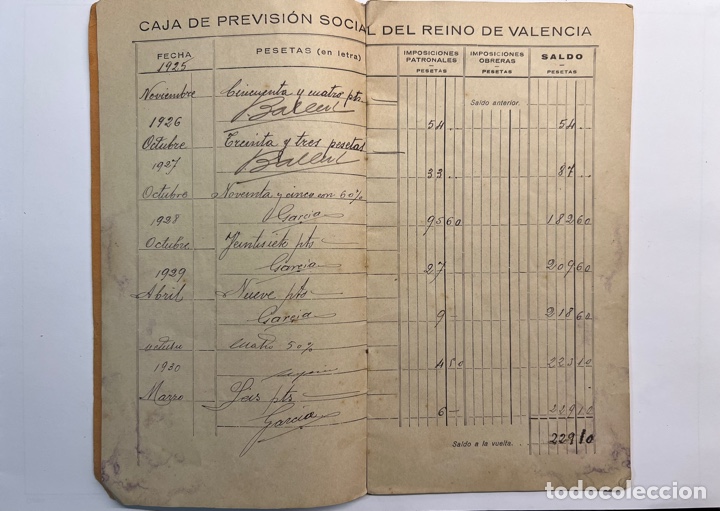 CAJA DE PREVISIÓN SOCIAL DEL REINO DE VALENCIA
FECHA PESETAS (en letra) IMPOSICIONES PATRONALES IMPOSICIONES OBRERAS SALDO
PESETAS PESETAS PESETAS
1925
Saldo anterior.
Noviembre Cincuenta y cuatro pts
Ballest
1926 54 .. 54 ..
Octubre Treinta y tres pesetas
Ballest
1927 33 .. 87 ..
Octubre Noventa y cinco con 60%
García
1928 95 60 182 60
Octubre Veintisiete pts
García
1929 27 209 60
Abril Nueve pts
García
9 - 218 60
octubre cuatro 50%
1930 4 50 223 10
Marzo Seis pts
García
6 - 229 10
Saldo a la vuelta. . . 229 10
todocoleccion.net